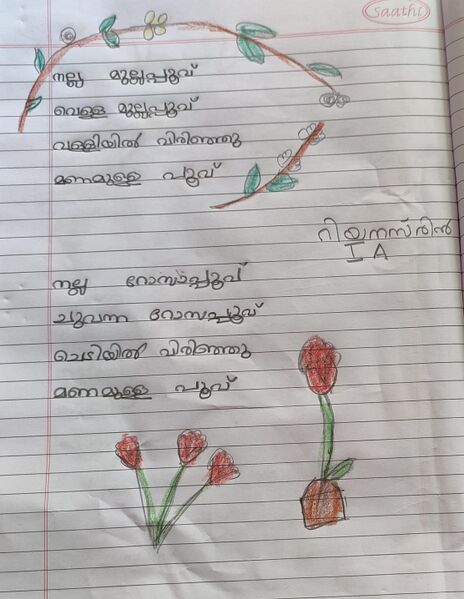 saathi
നല്ല മുല്ലപ്പൂവ്
വെള്ള മുല്ലപ്പൂവ്
വള്ളിയിൽ വിരിഞ്ഞു
മണമുള്ള പൂവ്
റിയനസ്രിൻ
I A
നല്ല റോസാപ്പൂവ്
ചുവന്ന റോസപ്പൂവ്
ചെടിയിൽ വിരിഞ്ഞു
മണമുള്ള പൂവ്